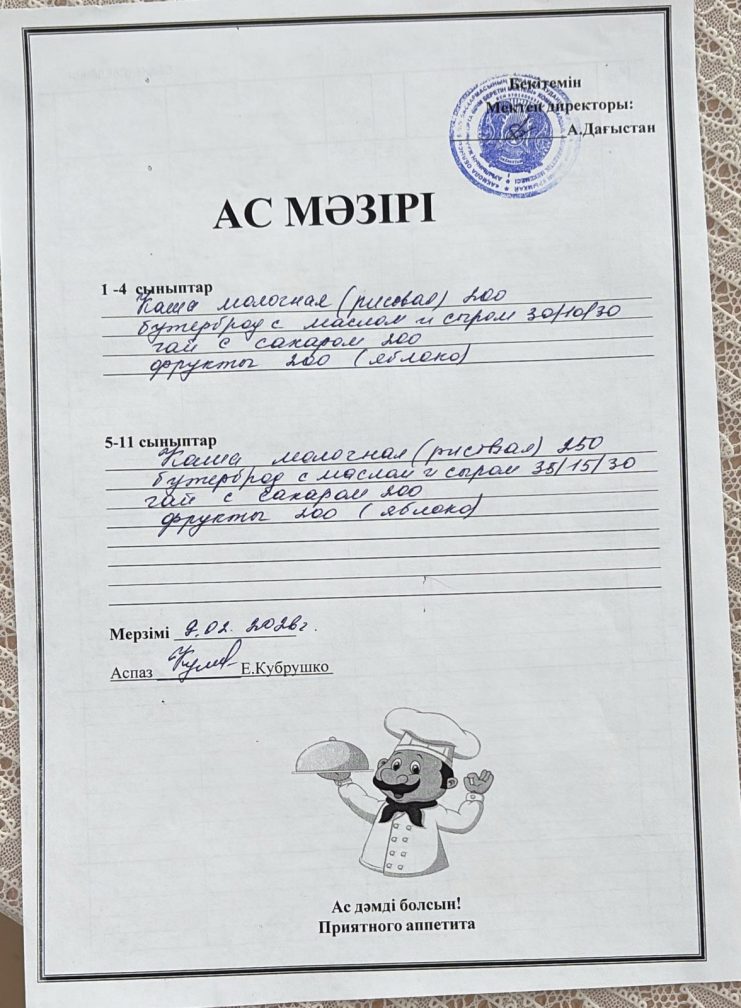 Бекітемін
Мектеп директоры:
А.Дағыстан
АС МӘЗІРІ
1 -4 сыныптар
Каша молочная (рисовая) 200
бутерброд с маслом и сыром 30/10/30
чай с сахаром 200
фрукты 200 (яблоко)
5-11 сыныптар
Каша молочная (рисовая) 250
бутерброд с маслом и сыром 35/15/30
чай с сахаром 200
фрукты 200 (яблоко)
Мерзімі 9.02. 2026г.
Аспаз Е.Кубрушко
Ас дәмді болсын!
Приятного аппетита